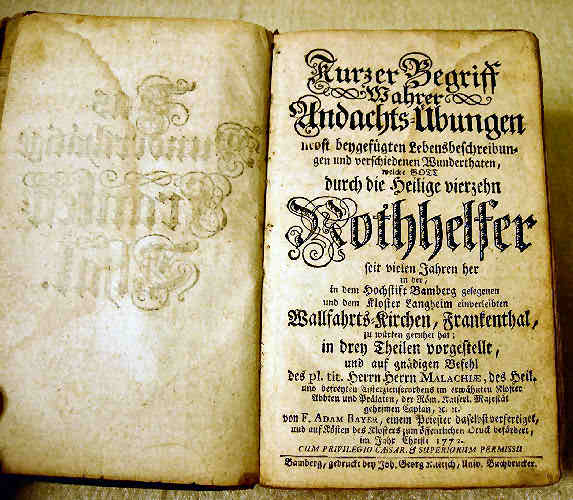 Kurzer Begriff
Wahrer
Andachts-Übungen
nebst beygefügten Lebensbeschreibun-
gen und verschiedenen Wunderthaten,
welche GOTT
durch die Heilige vierzehn
Nothhelfer
seit vielen Jahren her
in der,
in dem Hochstift Bamberg gelegenen
und dem Kloster Langheim einverleibten
Wallfahrts-Kirchen, Frankenthal,
zu würken geruhet hat;
in drey Theilen vorgestellt,
und auf gnädigen Befehl
des pl. tit. Herrn Herrn MALACHIÆ, des Heil.
und befreyten Cisterzienserordens im erwähnten Kloster
Abbten und Prälaten, der Röm. Kaiserl. Majestät
geheimen Caplan, ꝛc. ꝛc.
von F. ADAM BAYER, einem Priester daselbst verfertiget,
und auf Kösten des Klosters zum öffentlichen Druck befördert,
im Jahr Christi 1772.
CUM PRIVILEGIO CÆSAR. & SUPERIORUM PERMISSU
Bamberg, gedruckt bey Joh. Georg Klietsch, Univ. Buchdrucker.